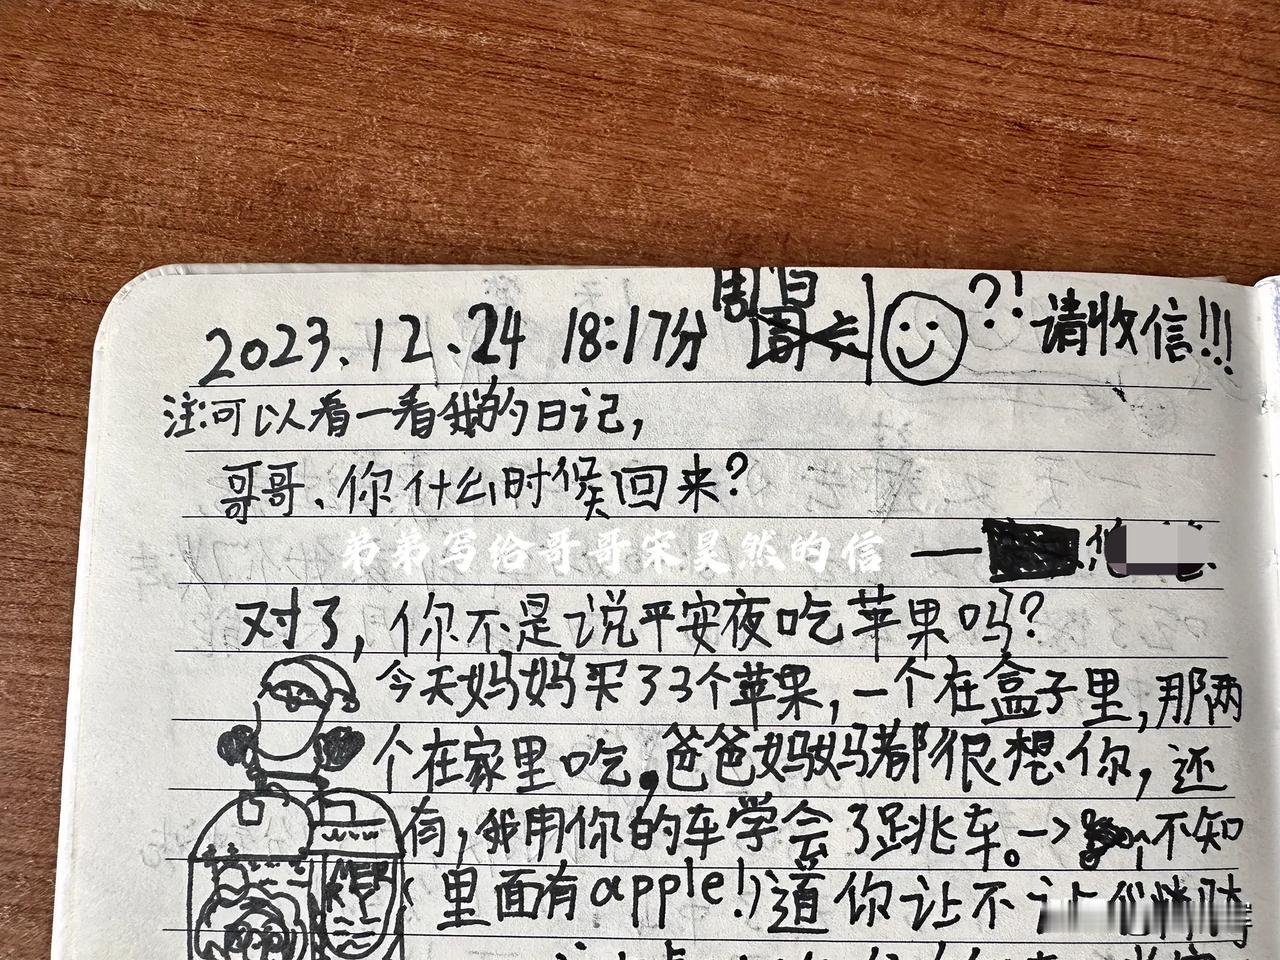 2023.12.24 18:17分 周日 ?! 请收信!!!
注:可以看一看我的日记,
哥哥、你什么时候回来?
弟弟写给哥哥宋昊然的信
对了,你不是说平安夜吃苹果吗?
今天妈妈买了3个苹果,一个在盒子里,那两
个在家里吃,爸爸妈妈都很想你,还
有,我用你的车学会了跳车。→不知
(里面有apple!)道你让不让